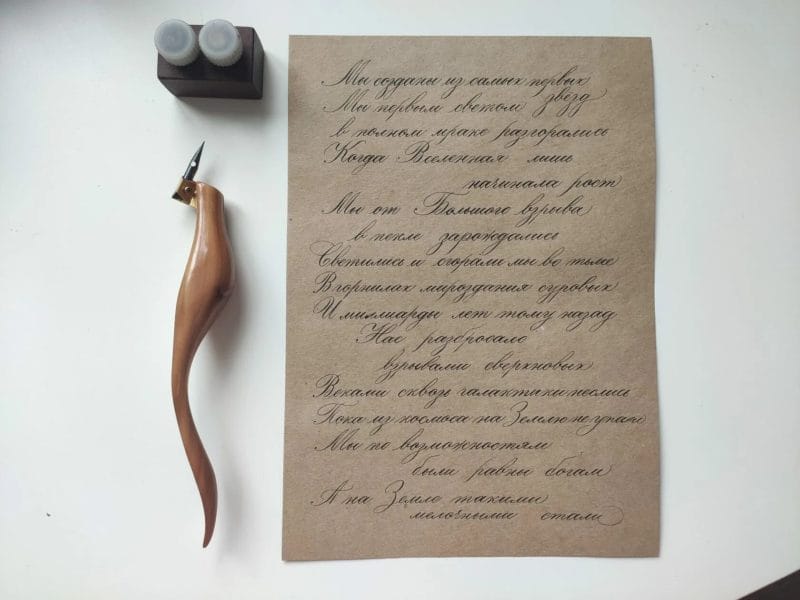 Мы созданы из самых первых
звёзд
Мы первым светом
в полном мраке разгорались
Когда Вселенная лишь
начинала рост
Мы от Большого взрыва
в пекле зарождались
Светились и сгорали мы во тьме
В горнилах мироздания суровых
И миллиарды лет тому назад
Нас разбросало
взрывами сверхновых
Веками сквозь галактики неслись
Пока из космоса на Землю не упали
Мы по возможностям
были равны богам
А на Земле такими
мелочными стали